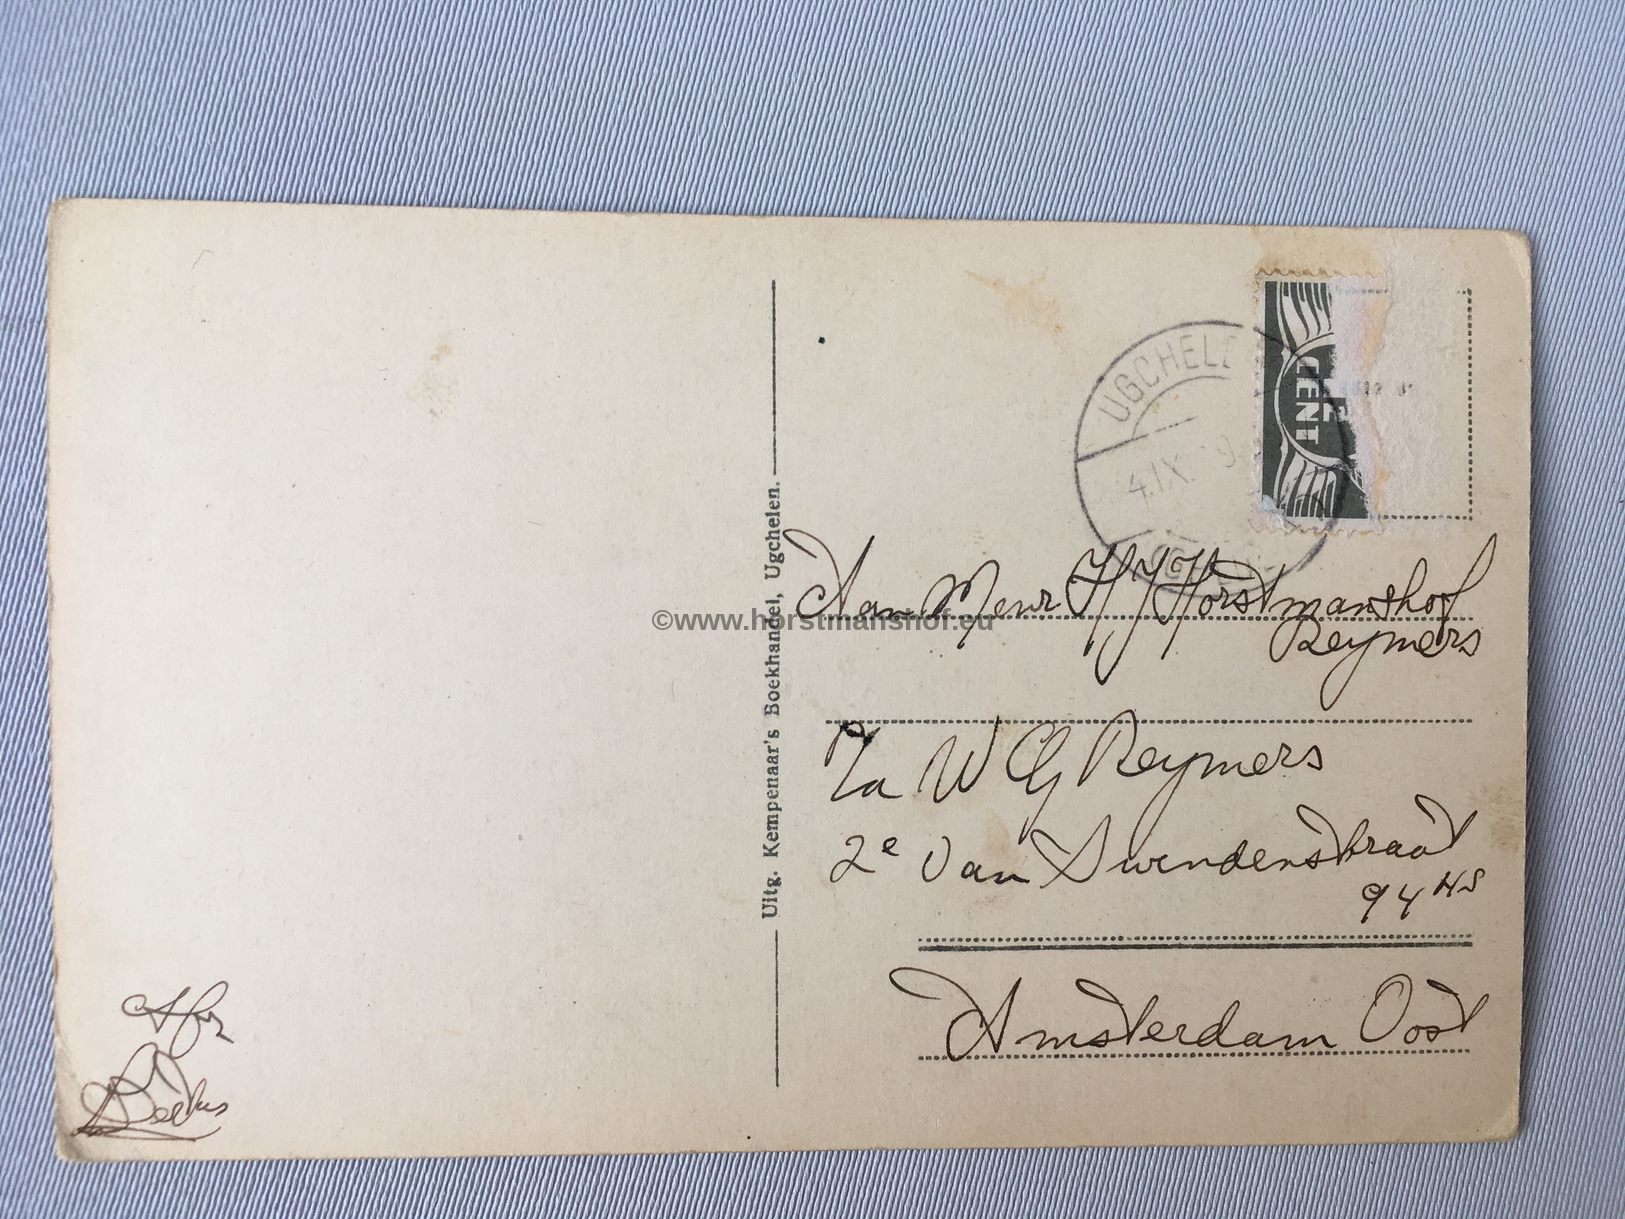 UGCHELE
4.IX. 9
UGCH
CENT
Uitg. Kempenaar's Boekhandel, Ugchelen.
©www.horstmanshof.eu
Aan Menr. H J Horstmanshof
Reymers
P/a W G Reymers
2e van Swindenstraat
94 HS
Amsterdam Oost